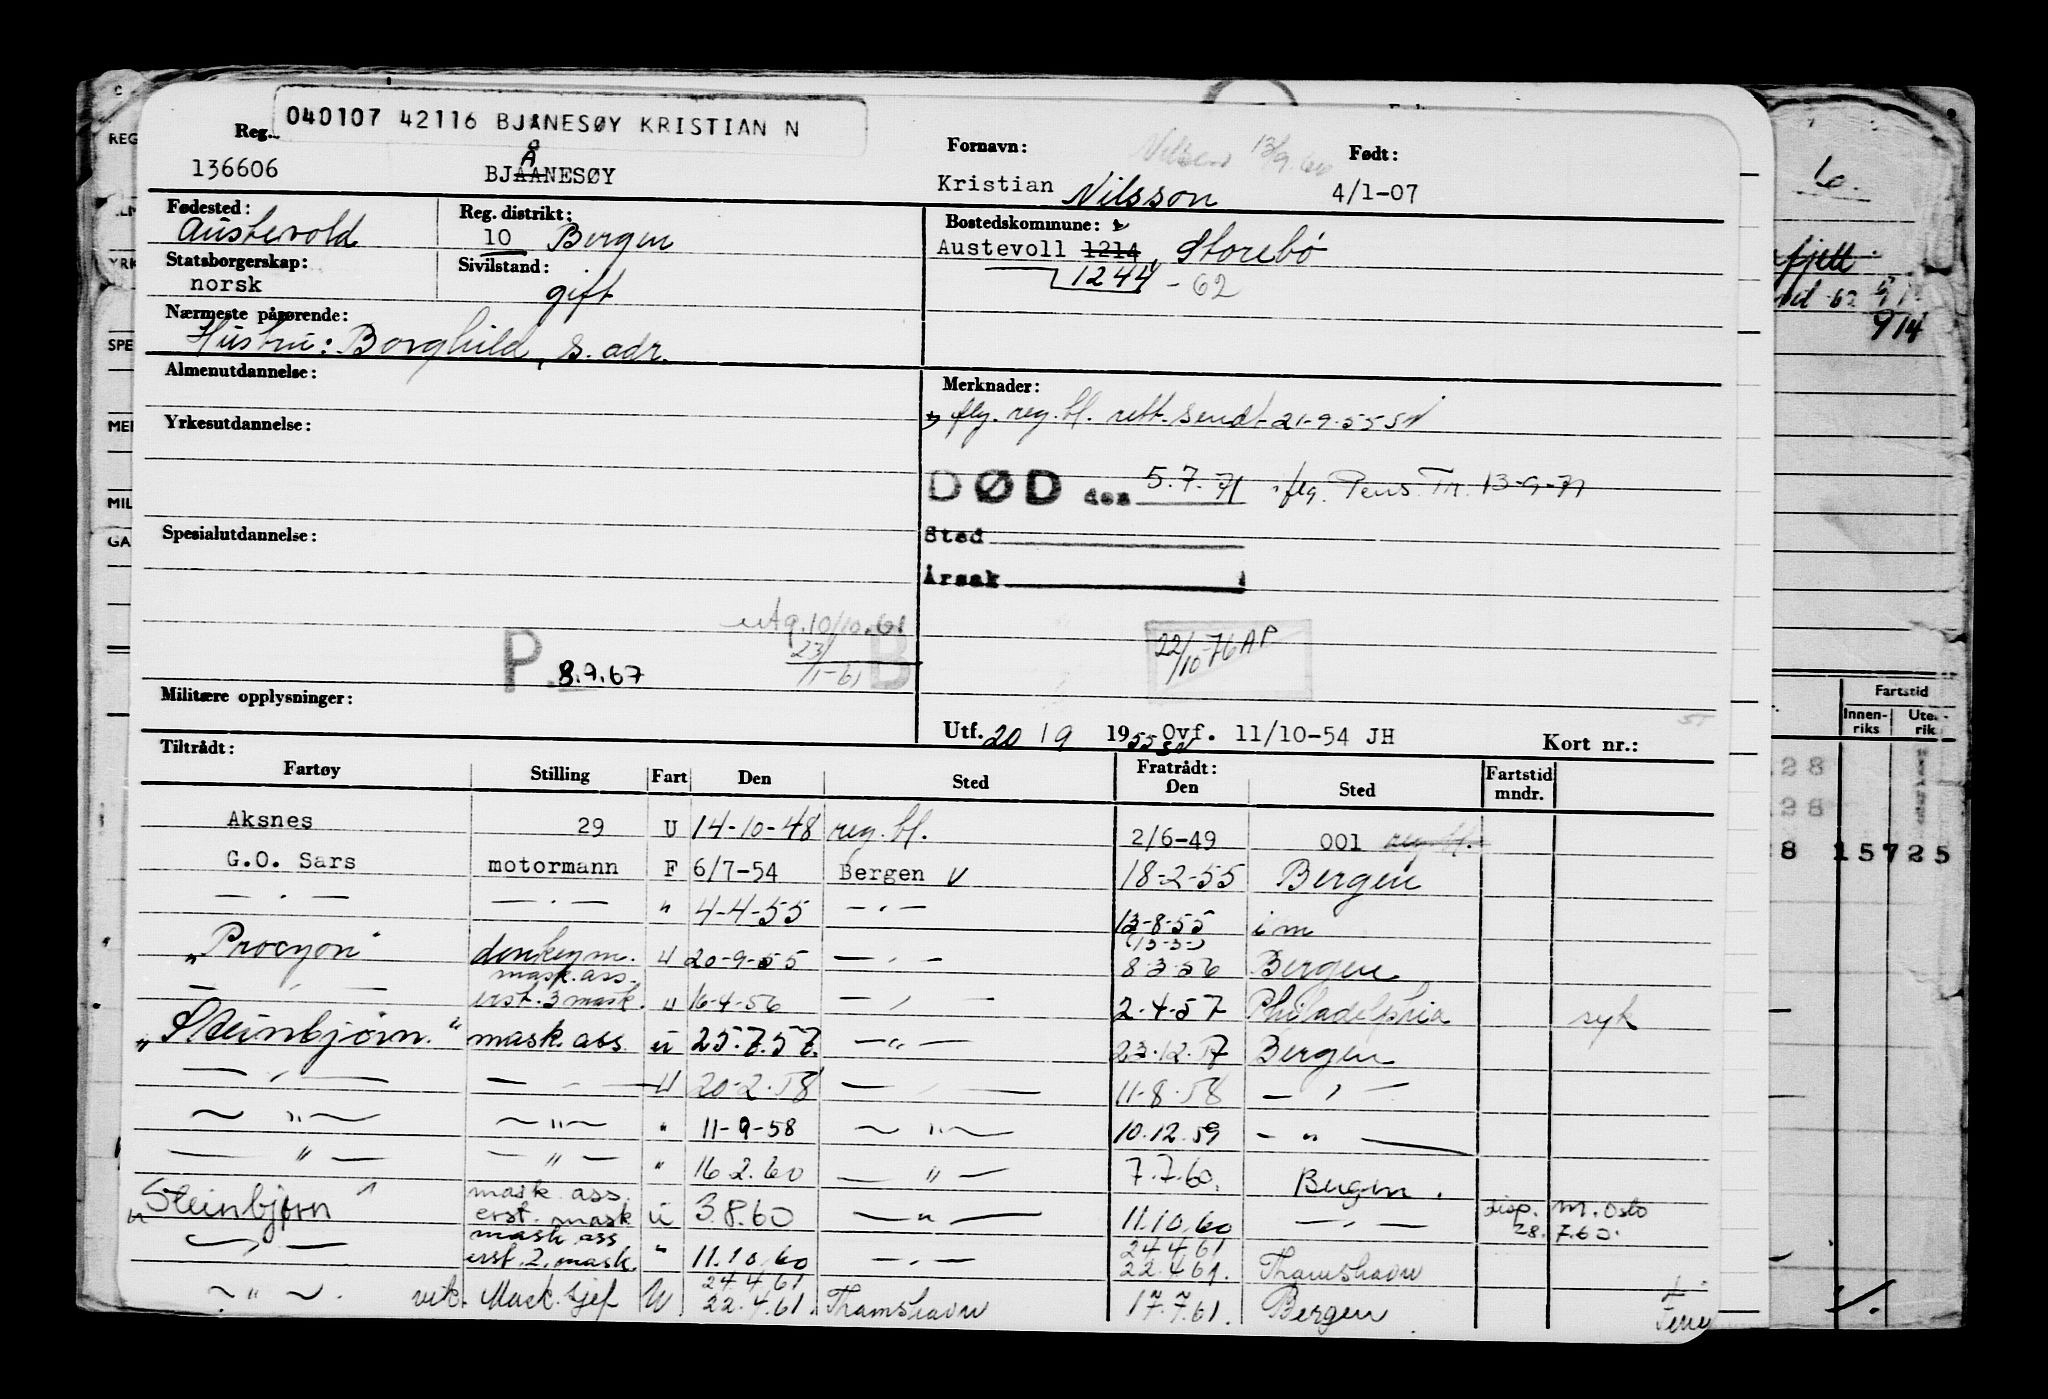 040107 42116 BJÅNESØY KRISTIAN N
Reg.
136606
Å
BJAANESØY
Fornavn:
Kristian Nilsson
Nilsen 13/9.60
Født:
4/1-07
Fødested:
Austevold
Reg. distrikt:
10 Bergen
Bostedskommune:
Austevoll 1214, Storebø
1244 - 62
Statsborgerskap:
norsk
Sivilstand:
gift
Nærmeste pårørende:
Hustru: Borghild, s. adr.
Almenutdannelse:
Merknader:
flg. reg. bl. rett. sendt 21-9-55 SN
Yrkesutdannelse:
DØD den 5.7.71 flg. Pens. Tr. 13-9-71
Spesialutdannelse:
Sted
Årsak
utg. 10/10.61
23/1-61
P. 8.9.67 B
22/10-76 AP
Militære opplysninger:
Utf. 20/9 1955 SN Ovf. 11/10-54 JH Kort nr.:
Tiltrådt: Fratrådt:
Fartøy Stilling Fart Den Sted Den Sted Fartstid mndr.
Aksnes 29 U 14-10-48 reg. bl. 2/6-49 001 reg. bl.
G.O. Sars motormann F 6/7-54 Bergen V 18-2-55 Bergen
— . — — . — " 4-4-55 — . — 13-8-55 i m
"Procyon" donkeym. U 20-9-55 — . — 8.3.56 Bergen
mask. ass.
— , — erst. 3 mask. U 16-4-56 — , — 2.4.57 Philadelphia syk
"Steinbjørn." mask. ass. U 25.7.57. — " — 23.12.57 Bergen
— , — — - — U 20-2.58 — , — 11-8.58 — , —
— " — — " — " 11-9-58 — " — 10.12.59 — " —
— " — — " — " 16.2.60 — " — 7.7.60. Bergen.
mask. ass.
"Steinbjørn" erst. mask U 3.8.60 — " — 11.10.60 — , — disp. M. Oslo 28.7.60.
mask. ass 24.4.61
— , — erst. 2. mask. " 11.10.60 — , — 22.4.61. Thamshavn
24.4.61
— " — vik. Mask. sjef U 22.4.61. Thamshavn 17.7.61. Bergen Ferie
REG
YRK
SPE
MIL
GA
6.
914
Fartstid
Innen-riks Uten-riks
28
28
8 157 25